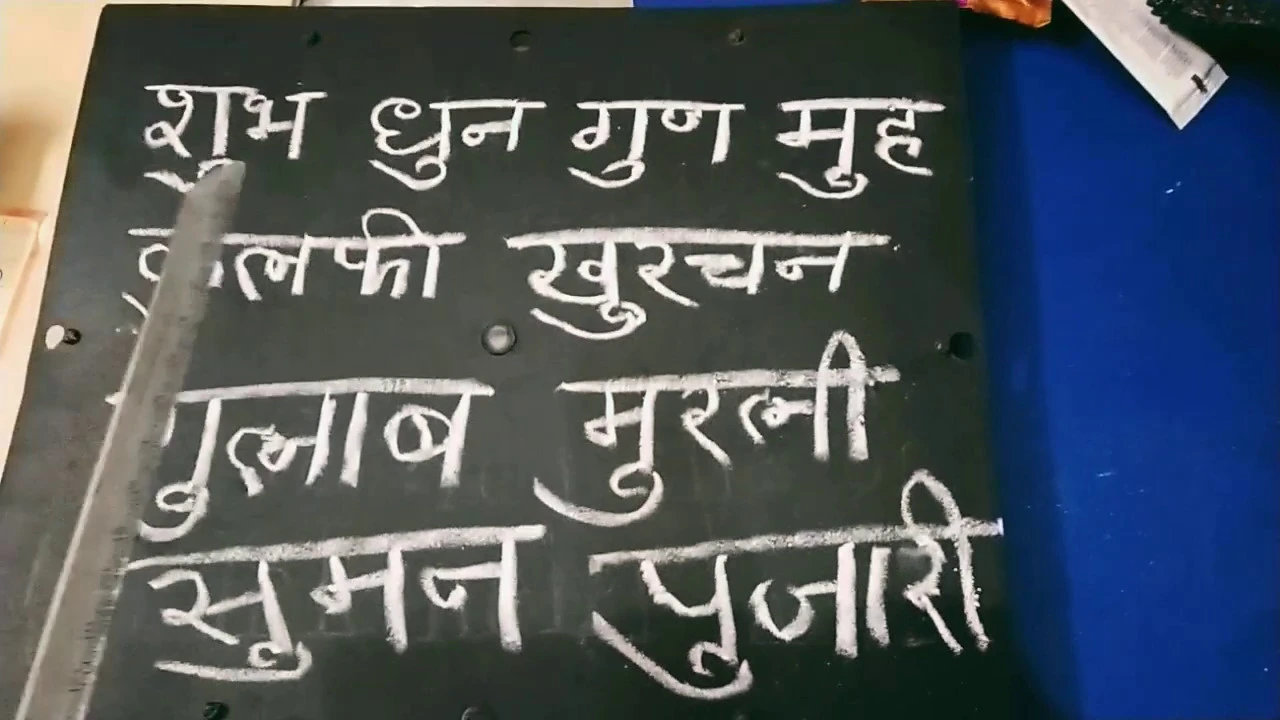 शुभ धुन गुण मुह
कुलफी खुरचन
गुलाब मुरली
सुमन पुजारी